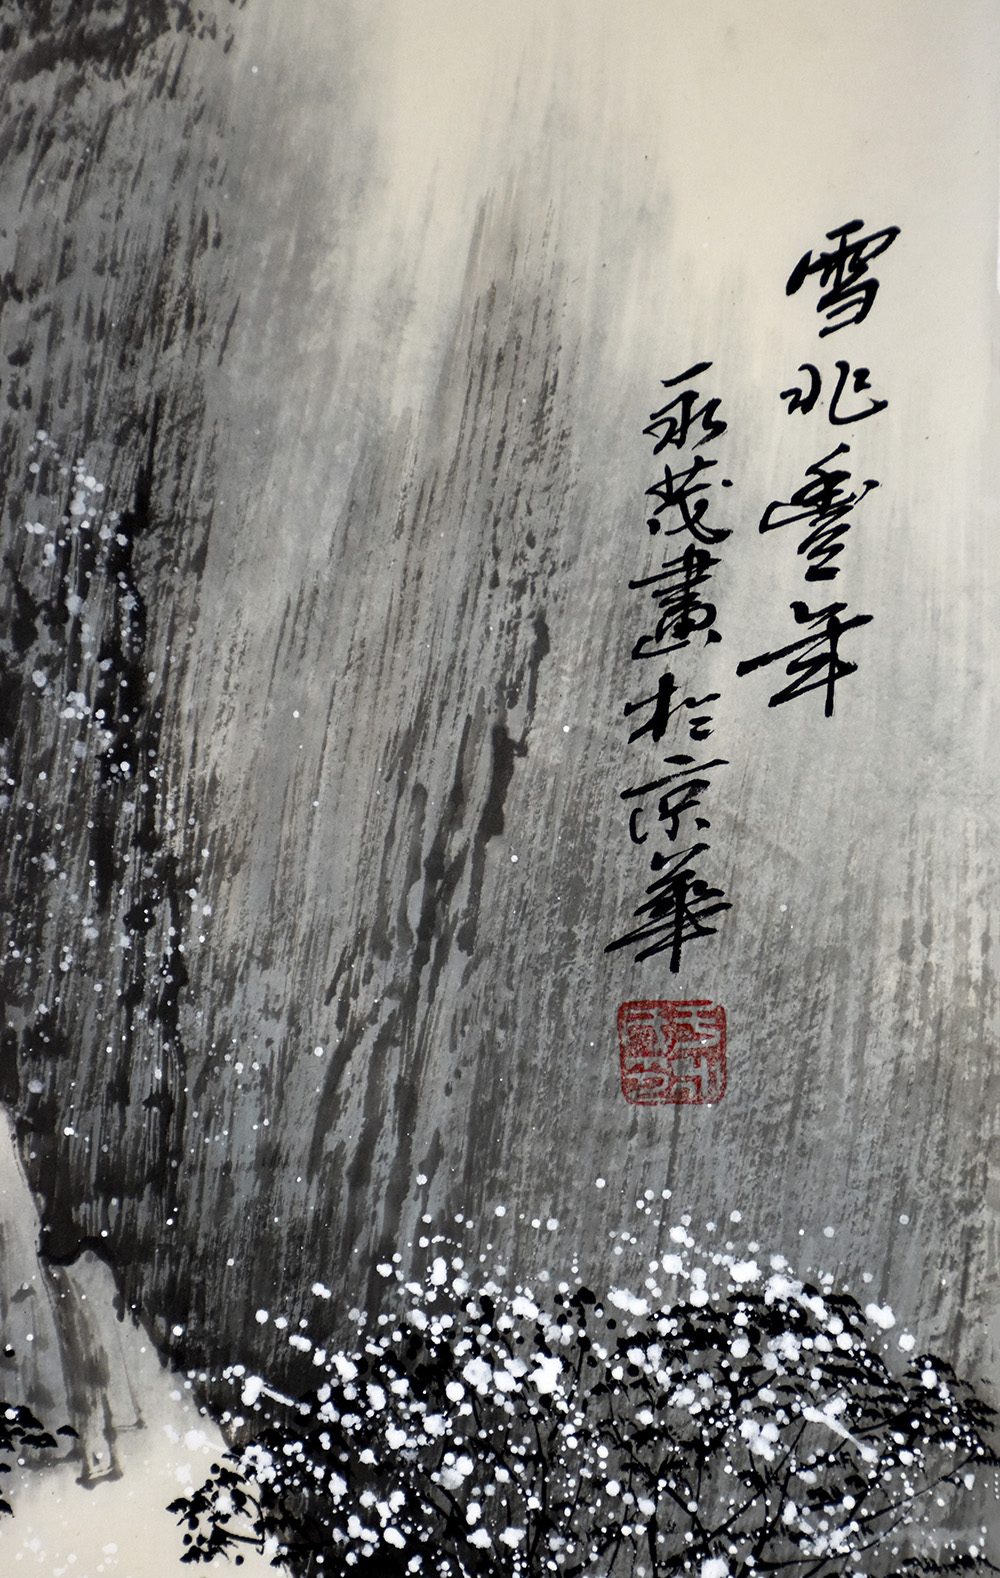 雪兆豐年
永茂畫於京華